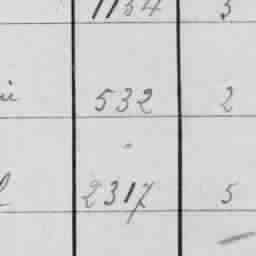 1134 3
532 2
2317 5